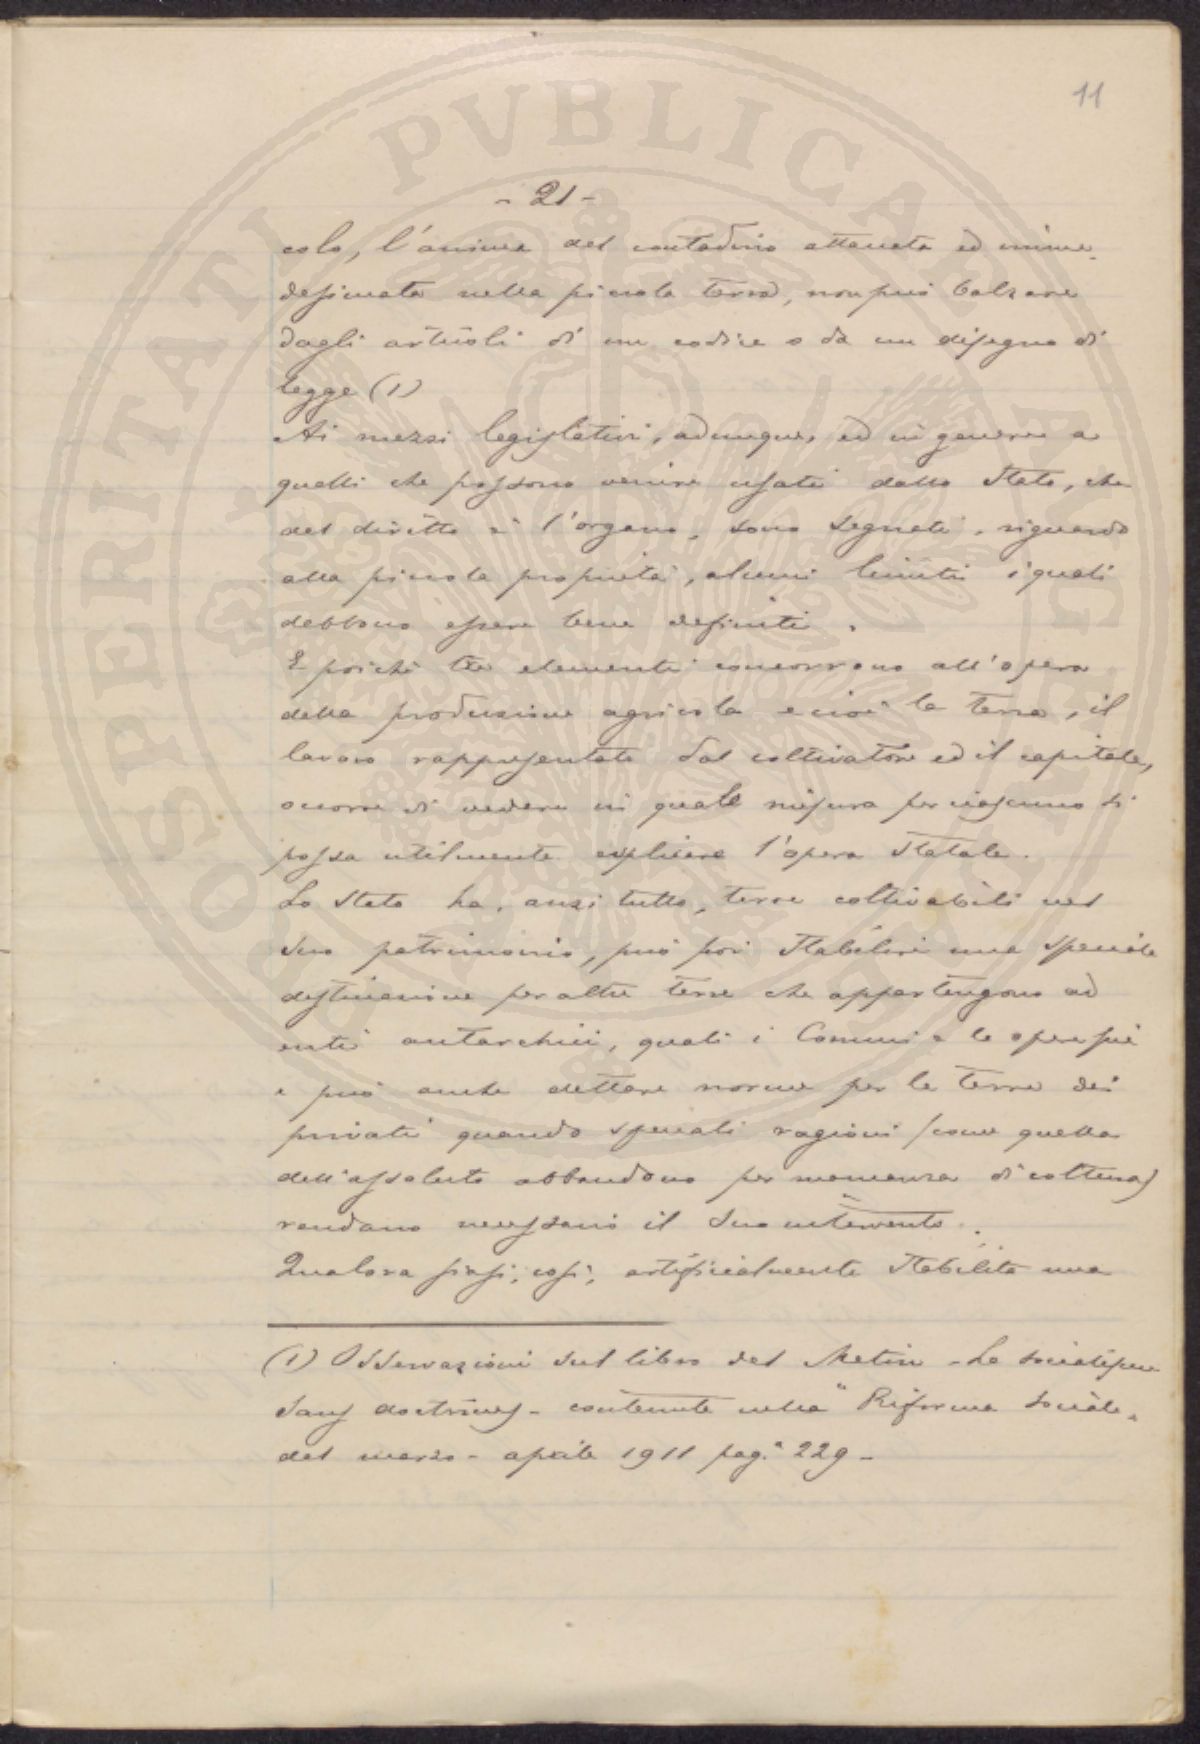 11
- 21 -
colo, l'anima del contadino attaccata ed imme-
desimata nella piccola terra, non può balzare
dagli articoli di un codice o da un disegno di
legge (1)
Ai mezzi legislativi, adunque, ed in genere a
quelli che possono venire usati dallo Stato, che
del diritto è l'organo, sono segnati, riguardo
alla piccola proprietà, alcuni limiti i quali
debbono essere bene definiti.
E poichè tre elementi concorrono all'opera
della produzione agricola e cioè la terra, il
lavoro rappresentato dal coltivatore ed il capitale,
occorre di vedere in quale misura per ciascuno si
possa utilmente esplicare l'opera Statale.
Lo Stato ha, anzi tutto, terre coltivabili nel
suo patrimonio, può poi stabilire una speciale
destinazione per altre terre che appartengono ad
enti autarchici, quali i Comuni e le opere pie
e può anche dettare norme per le terre dei
privati quando speciali ragioni (come quella
dell'assoluto abbandono per mancanza di coltura)
rendano necessario il suo intervento.
Qualora siasi, così, artificialmente stabilita una
(1) Osservazioni sul libro del Metin - Le socialisme
sans doctrines - contenute nella "Riforma Sociale"
del marzo - aprile 1911 pag.ª 229 -